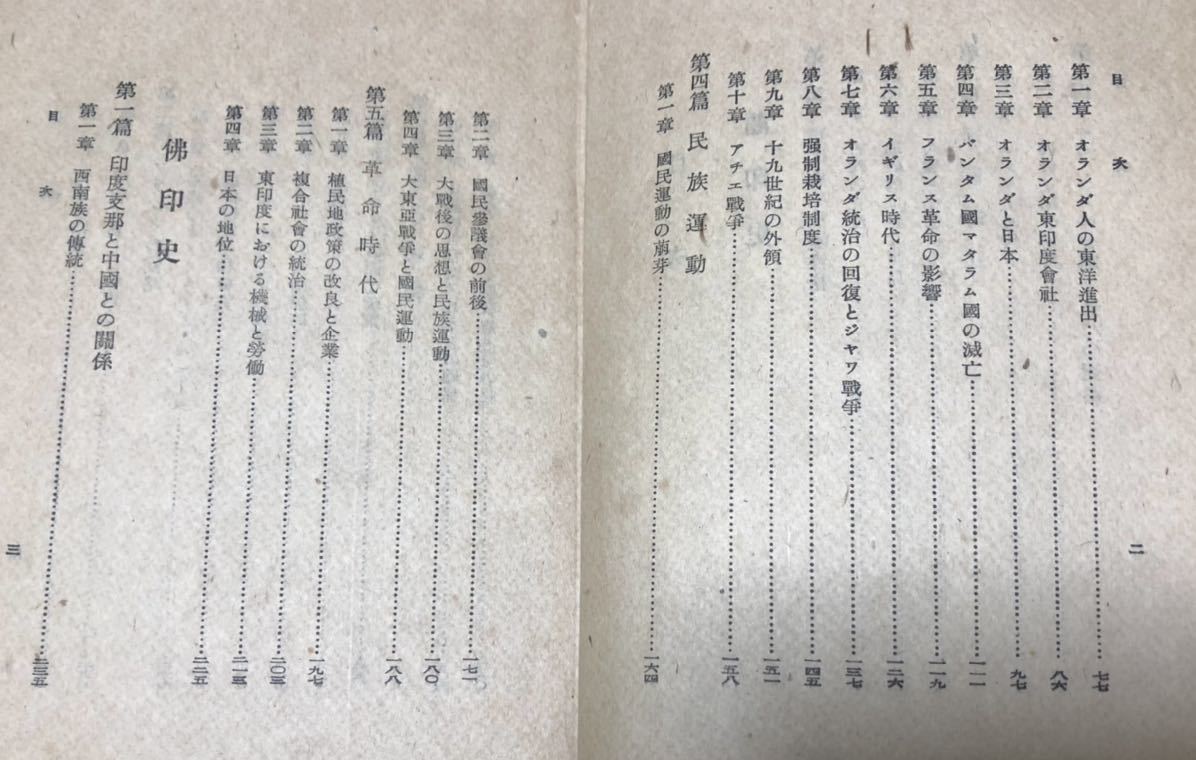 目次
二
第一章 オランダ人の東洋進出……七七
第二章 オランダ東印度會社……八六
第三章 オランダと日本……九七
第四章 バンタム國マタラム國の滅亡……一一一
第五章 フランス革命の影響……一一九
第六章 イギリス時代……一二六
第七章 オランダ統治の回復とジャワ戰爭……一三七
第八章 强制栽培制度……一四五
第九章 十九世紀の外領……一五一
第十章 アチエ戰爭……一五八
第四篇 民族運動
第一章 國民運動の萠芽……一六四
第二章 國民參議會の前後……一七一
第三章 大戰後の思想と民族運動……一八〇
第四章 大東亞戰爭と國民運動……一八八
第五篇 革命時代
第一章 植民地政策の改良と企業……一九七
第二章 複合社會の統治……二〇三
第三章 東印度における機械と勞働……二一五
第四章 日本の地位……二二五
佛印史
第一篇 印度支那と中國との關係
第一章 西南族の傳統……二三五
目次
三